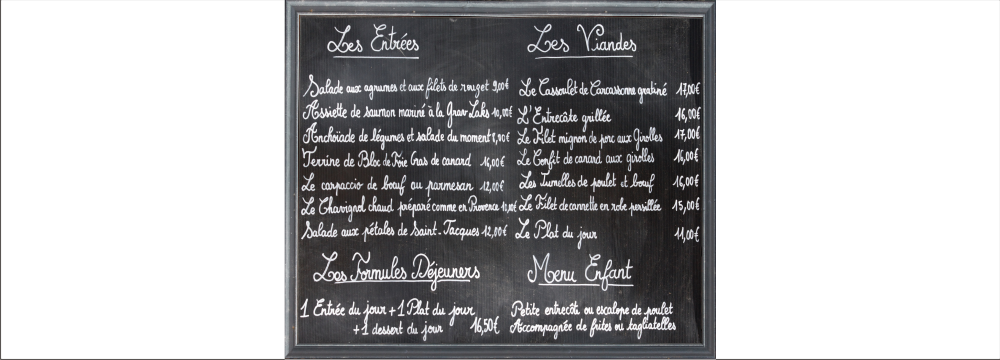 Les Entrées
Salade aux agrumes et aux filets de rouget 9,00€
Assiette de saumon mariné à la Grav Laks 10,00€
Anchoïade de légumes et salade du moment 8,90€
Terrine de Bloc de Foie Gras de canard 16,00€
Le carpaccio de bœuf au parmesan 12,00€
Le Chavignol chaud préparé comme en Provence
Salade aux pétales de Saint-Jacques 12,00€
Les Viandes
Le Cassoulet de Carcassonne gratiné 17,00€
L'Entrecôte grillée 16,00€
Le Filet mignon de porc aux Girolles 17,00€
Le Confit de canard aux girolles 16,00€
Les Jumelles de poulet et bœuf 16,00€
Le Filet de cannette en robe persillée 15,00€
Le Plat du jour 11,00€
Les Formules Déjeuners
1 Entrée du jour + 1 Plat du jour
+ 1 dessert du jour 16,50€
Menu Enfant
Petite entrecôt ou escalope de poulet
Accompagnée de frites ou tagliatelles